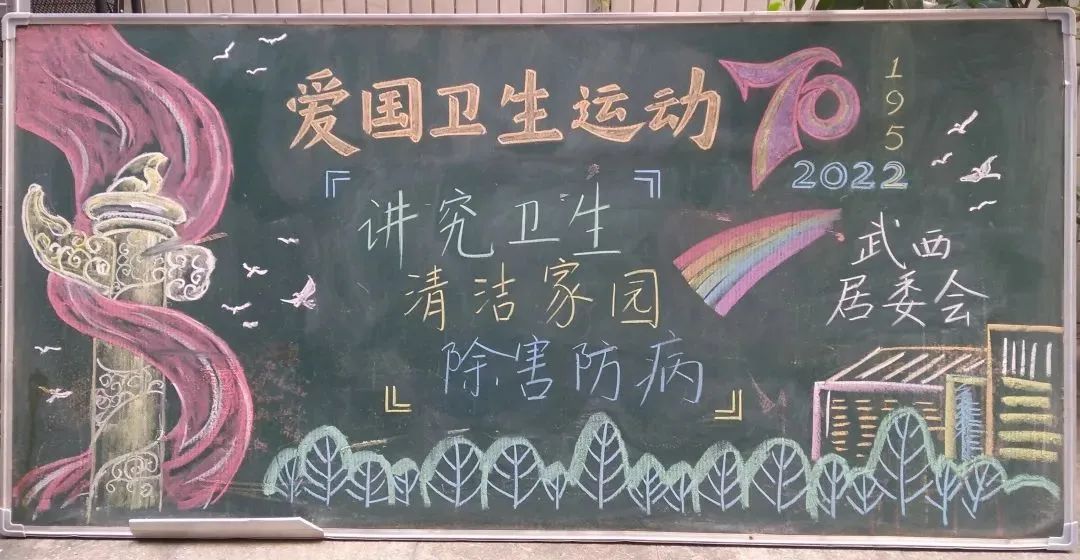 爱国卫生运动
70
195
2022
讲究卫生
清洁家园
除害防病
武西
居委会